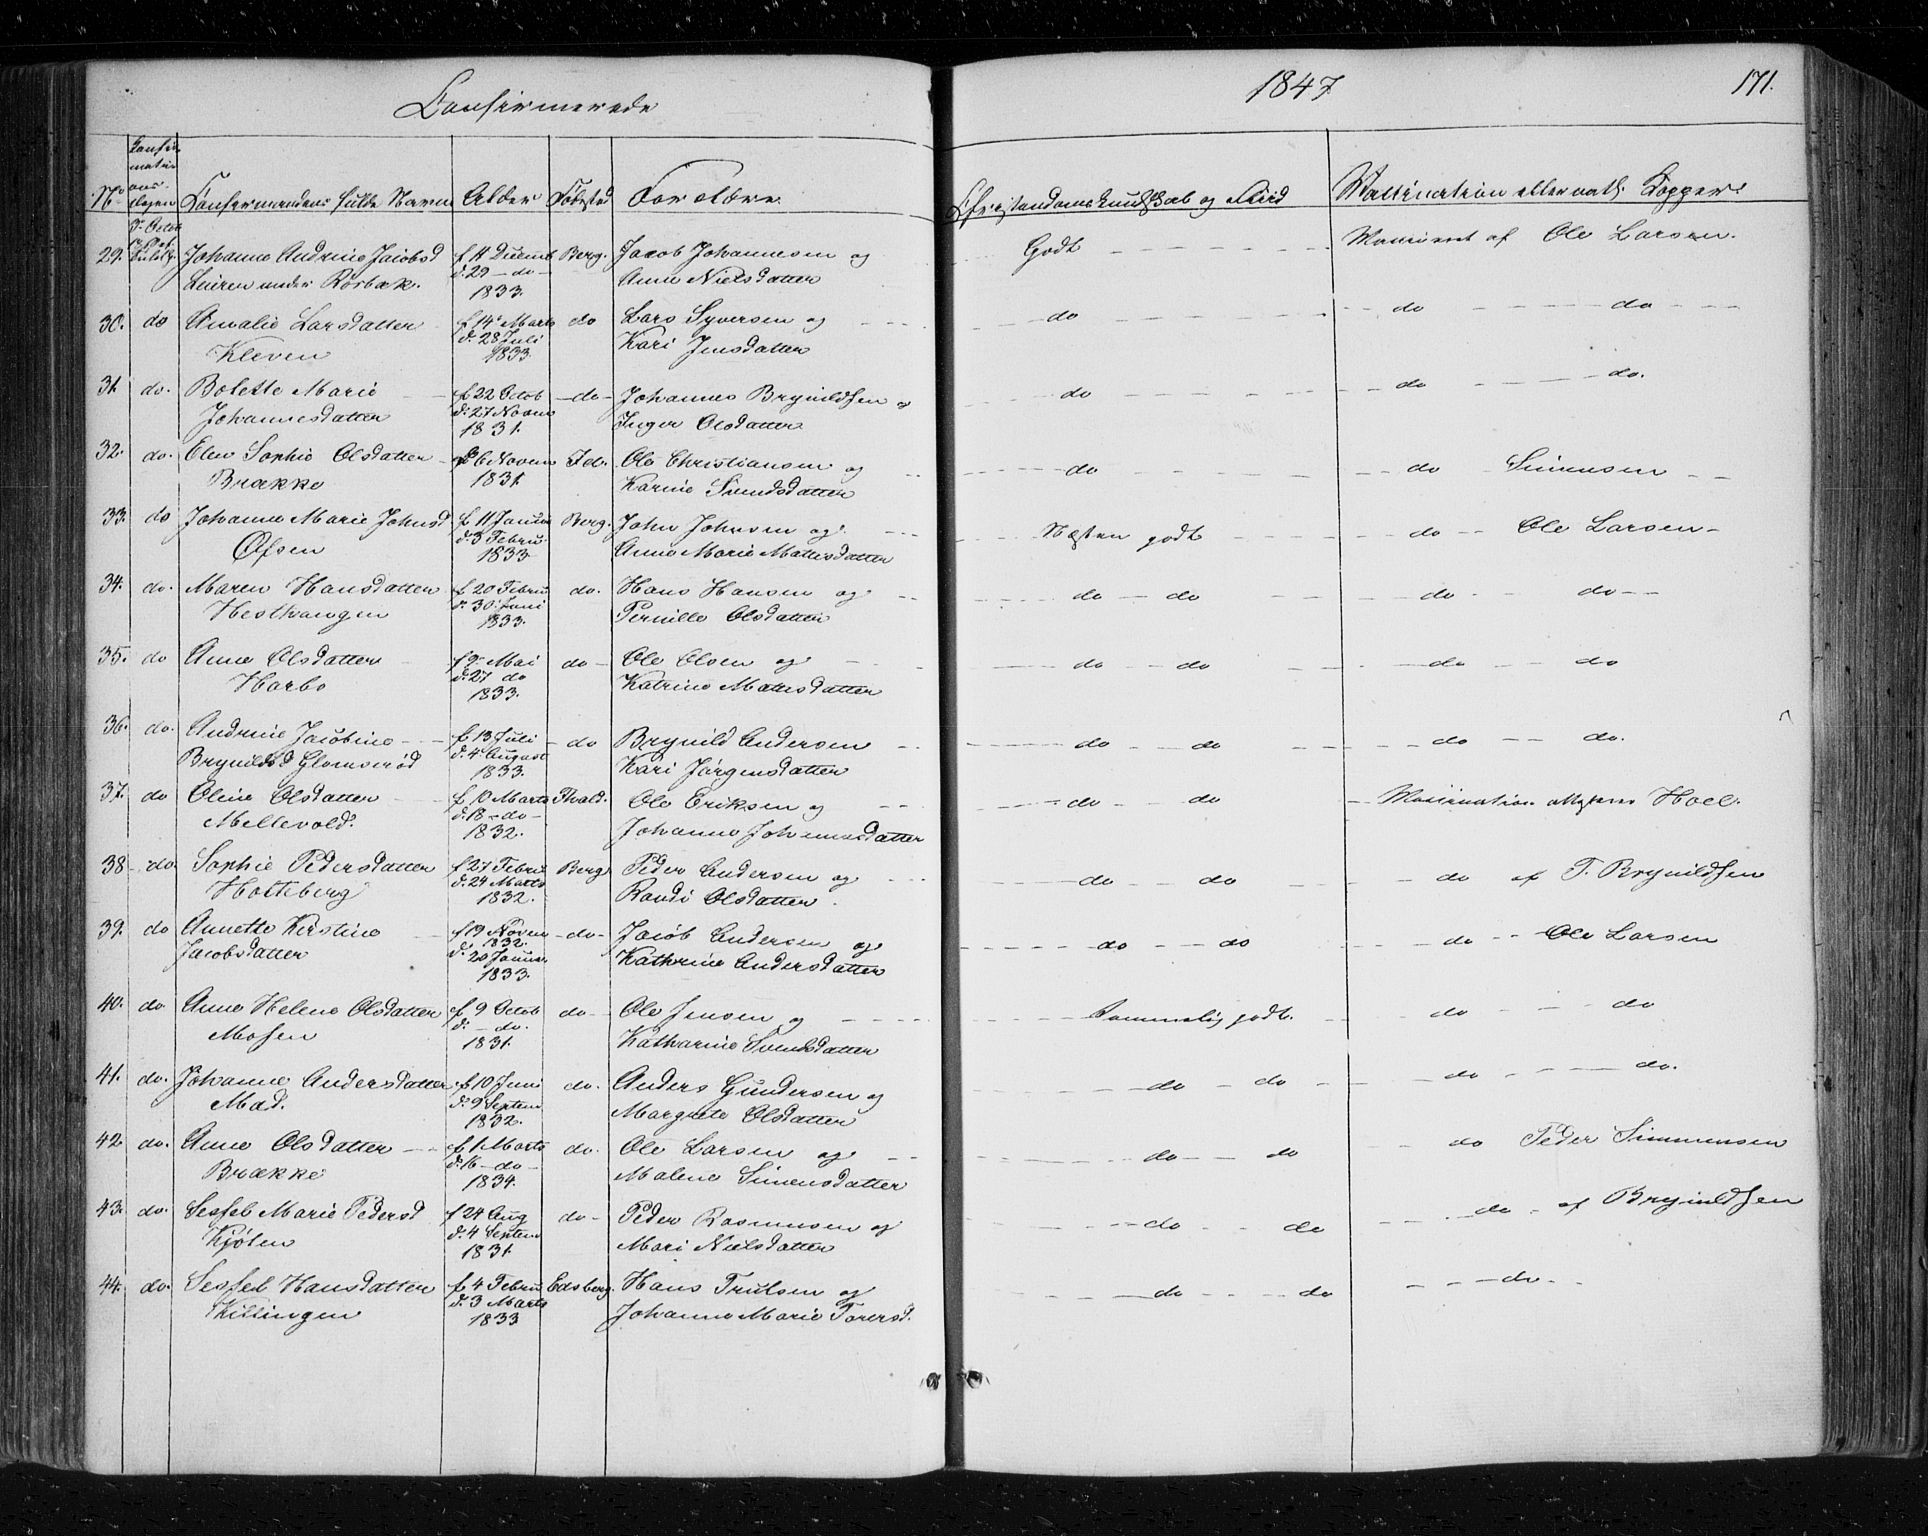 Confirmerede
1847
171.
No Confirmationsdagen Confirmandens fulde Navn Alder Fødested Forældre Christendomskundskab og Flid Vaccination eller nat. Kopper
29. Johanne Andrine Jacobsd f 11 Decemb Berg. Jacob Johannesen og Godt Vaccineret af Ole Larsen.
under Rørbæk. d. 29 - do - Anne Nielsdatter
1833.
30. do Amalie Larsdatter f 14 Marts do Lars Syversen og do do do
Kleven d. 28 Juli Kari Jensdatter
1833.
31. do. Bolette Marie f 22 Octob do Johannes Brynildsen og do do do.
Johannesdatter d. 27 Novem Inger Olsdatter
1831.
32. do. Elen Sophie Olsdatter f 6 Novem Id. Ole Christiansen og do do Simensen
Brække 1831. Karine Svendsdatter
33. do Johanne Marie Johnsd f 11 Januar Berg. John Johnsen og Næsten godt do Ole Larsen
Øfsen d. 3 Febru. Anne Marie Mattisdatter
1833.
34. do. Maren Hansdatter f 20 Febru do. Hans Hansen og do do do do
Hesthaugen d. 30 Juni Pernille Olsdatter
1833.
35. do Anne Olsdatter f 9 Mai do Ole Olsen og do do do do
Harbo d. 27 do Katrine Mattisdatter
1833.
36. do. Andrine Jacobine f. 13 Juli do Brynild Andersen do do do do.
Brynildsd Glomserød d. 4 August Kari Jørgensdatter
1833.
37. do Oline Olsdatter f. 10 Marts Ole Eriksen og do do Vaccination Hoel.
Mellevold. d. 18 - do - Johanne Johannesdatter
1832.
38 do. Sophie Pedersdatter f 27 Febru Berg Peder Andersen og do do do af T. Brynildsen
Holteberg d. 24 Marts Randi Olsdatter.
1832.
39. do Annette Kirstine f 19 Novem do Jacob Andersen og do do do Ole Larsen
1832.
Jacobsdatter d. 20 Januar Kathrine Andersdatter
1833.
40. do Anne Helene Olsdatter f 9 Octob do Ole Jensen og Temmelig godt. do do
Mosen d. - do. Katharine Svendsdatter
1831.
41. do. Johanne Andersdatter f 10 Juni do. Anders Gundersen og do do do do.
Mæd. d. 9 Septem Margrete Olsdatter
1832.
42. do. Anne Olsdatter f 1 Marts do. Ole Larsen og do do do Peder Simmensen
Brække d. 16 - do - Malene Simensdatter
1834.
43. do. Sessel Marie Pedersd f 24 Aug do Peder Rasmusen og do do do af Brynildsen
Kjølen d. 4 Septem Mari Nielsdatter
1831.
44. do. Sessel Hansdatter f. 4 Febru Edsberg. Hans Trulsen og do do do
Killingen d. 3 Marts Johanne Marie Torersd.
1833